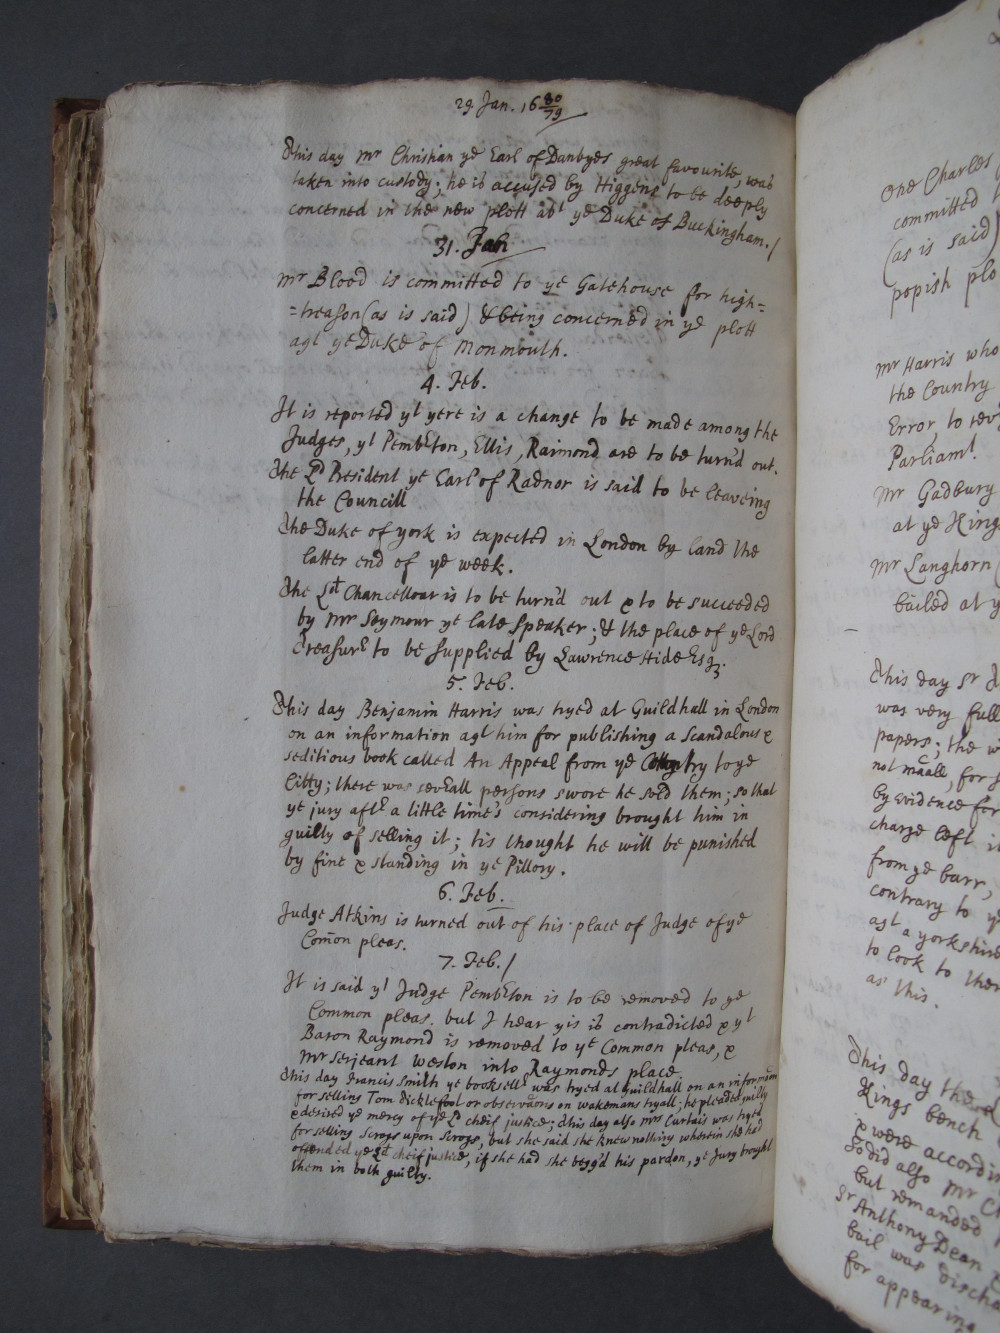 29. Jan. 16 80/79
This day Mr Christian ye Earl of Danbyes great favourite, was
taken into custody; he is accused by Higgens to be deeply
concerned in the new plott abt ye Duke of Buckingham./
31. Jan
Mr Blood is committed to ye Gatehouse for high=
=treason (as is said) & being concerned in ye plott
agt ye Duke of Monmouth.
4. Feb.
It is reported yt yere is a change to be made among the
Judges, yt Pemberton, Ellis, Raimond are to be turn'd out.
The Ld President ye Earl of Radnor is said to be leaveing
the Councill
The Duke of york is expected in London by land the
latter end of ye week.
The Ld Chancellour is to be turn'd out & to be succeeded
by Mr Seymour ye late speaker; & the place of ye Lord
Treasurer to be supplied by Lawrence Hide Esq.
5. Feb.
This day Benjamin Harris was tryed at Guildhall in London
on an information agt him for publishing a scandalous &
seditious book called An Appeal from ye Country to ye
Citty; there was severall persons swore he sold them; so that
ye jury after a little time's considering brought him in
guilty of selling it; tis thought he will be punished
by fine & standing in ye Pillory.
6. Feb.
Judge Atkins is turned out of his place of Judge of ye
Com̄on pleas.
7. Feb./
It is said yt Judge Pemberton is to be removed to ye
Common pleas. but I hear yis is contradicted & yt
Baron Raymond is removed to ye Common pleas, &
Mr Serjeant Weston into Raymonds place.
This day Francis Smith ye bookseller was tryed at Guildhall on an information
for selling Tom Ticklefool or observations on wakemans tryall; he pleaded guilty
& desired ye mercy of ye Ld cheif justice; this day also Mrs Curtais was tryed
for selling Scrogs upon Scrogs, but she said she knew nothing wherein she had
offended ye Ld cheif justice, if she had she begg'd his pardon, ye Jury brought
them in both guilty.
One Charles
committed
(as is said)
popish plo
Mr Harris who
the Country
Error to rev
Parliamt.
Mr Gadbury
at ye King
Mr Langhorn
bailed at y
This day Sr
was very full
papers; the w
not maall, for
by evidence for
charge left i
from ye barr,
contrary to y
agt a yorkshire
to look to ther
as this.
This day the
Kings bench
& were accordin
So did also Mr C
but remanded
Sr Anthony Dean
bail was discha
for appearing